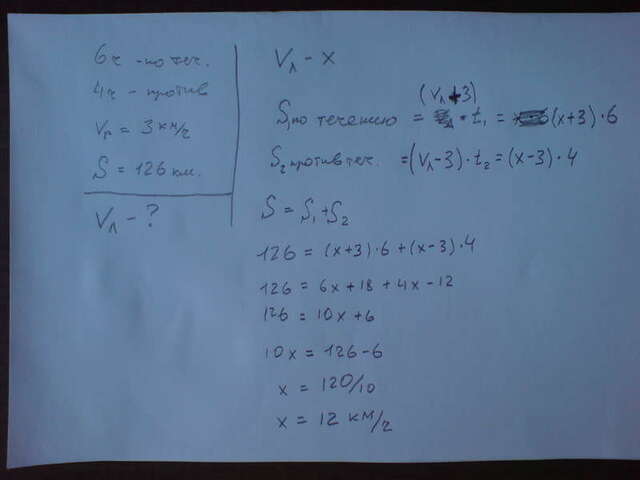 6ч - по теч.
4ч - против
Vр = 3 км/ч
S = 126 км.
Vл - ?
Vл - x
(Vл + 3)
S₁ по течению = · t₁ = (x+3) · 6
S₂ против теч. = (Vл - 3) · t₂ = (x-3) · 4
S = S₁ + S₂
126 = (x+3) · 6 + (x-3) · 4
126 = 6x + 18 + 4x - 12
126 = 10x + 6
10x = 126 - 6
x = 120/10
x = 12 км/ч